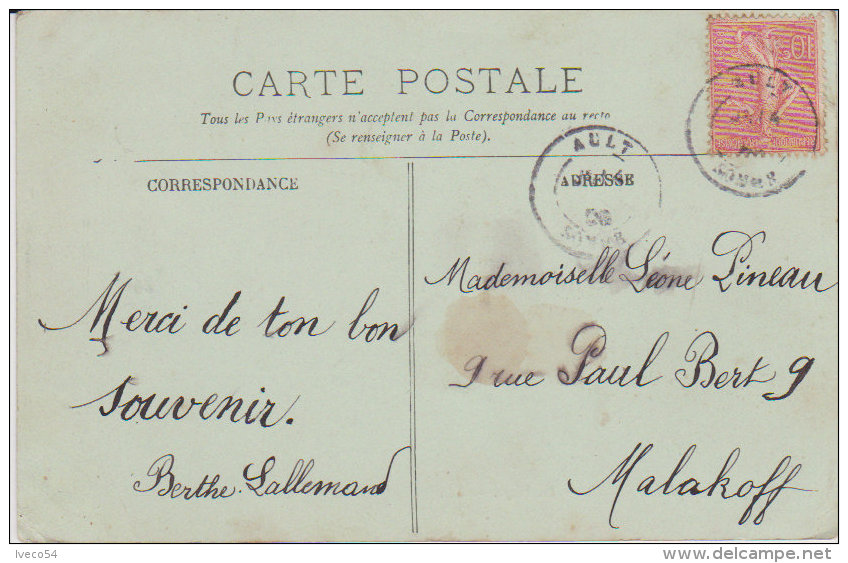 CARTE POSTALE
Tous les Pays étrangers n'acceptent pas la Correspondance au recto
(Se renseigner à la Poste).
CORRESPONDANCE
ADRESSE
AULT
SOMME
AULT
SOMME
10
Merci de ton bon
souvenir.
Berthe Lallemand
Mademoiselle Léone Pineau
9 rue Paul Bert 9
Malakoff
Iveco54
delcampe.net